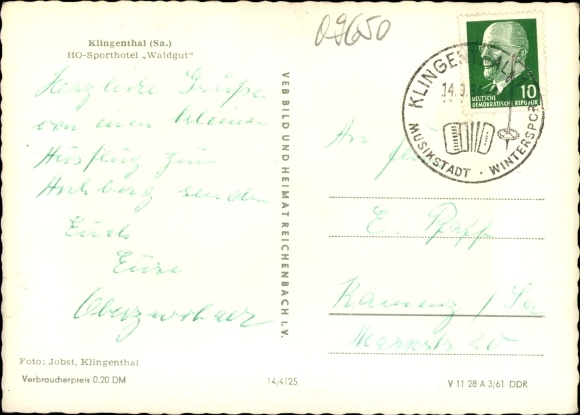 09650
Klingenthal (Sa.)
HO-Sporthotel „Waldgut"
Herzliche Grüße
von einem kleinen
Ausflug zum
Aschberg senden
Euch
Eure
Oberzwohaer
Foto: Jobst, Klingenthal
Verbraucherpreis 0,20 DM
14/4125
VEB BILD UND HEIMAT REICHENBACH I.V.
KLINGENTHAL
14.9.
MUSIKSTADT · WINTERSPOR
10
DEUTSCHE
DEMOKRATISCHE REPUBLIK
An
E. Pfaff
Kamenz / Sa
20
V 11 28 A 3/61 DDR